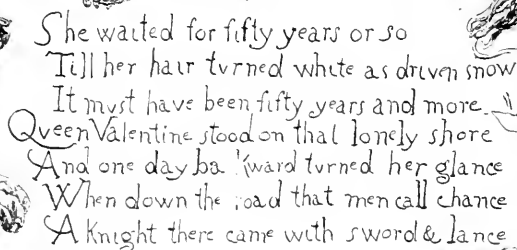 She waited for fifty years or so
Till her hair turned white as driven snow
It must have been fifty years and more
Queen Valentine stood on that lonely shore
And one day backward turned her glance
When down the road that men call chance
A Knight there came with sword & lance